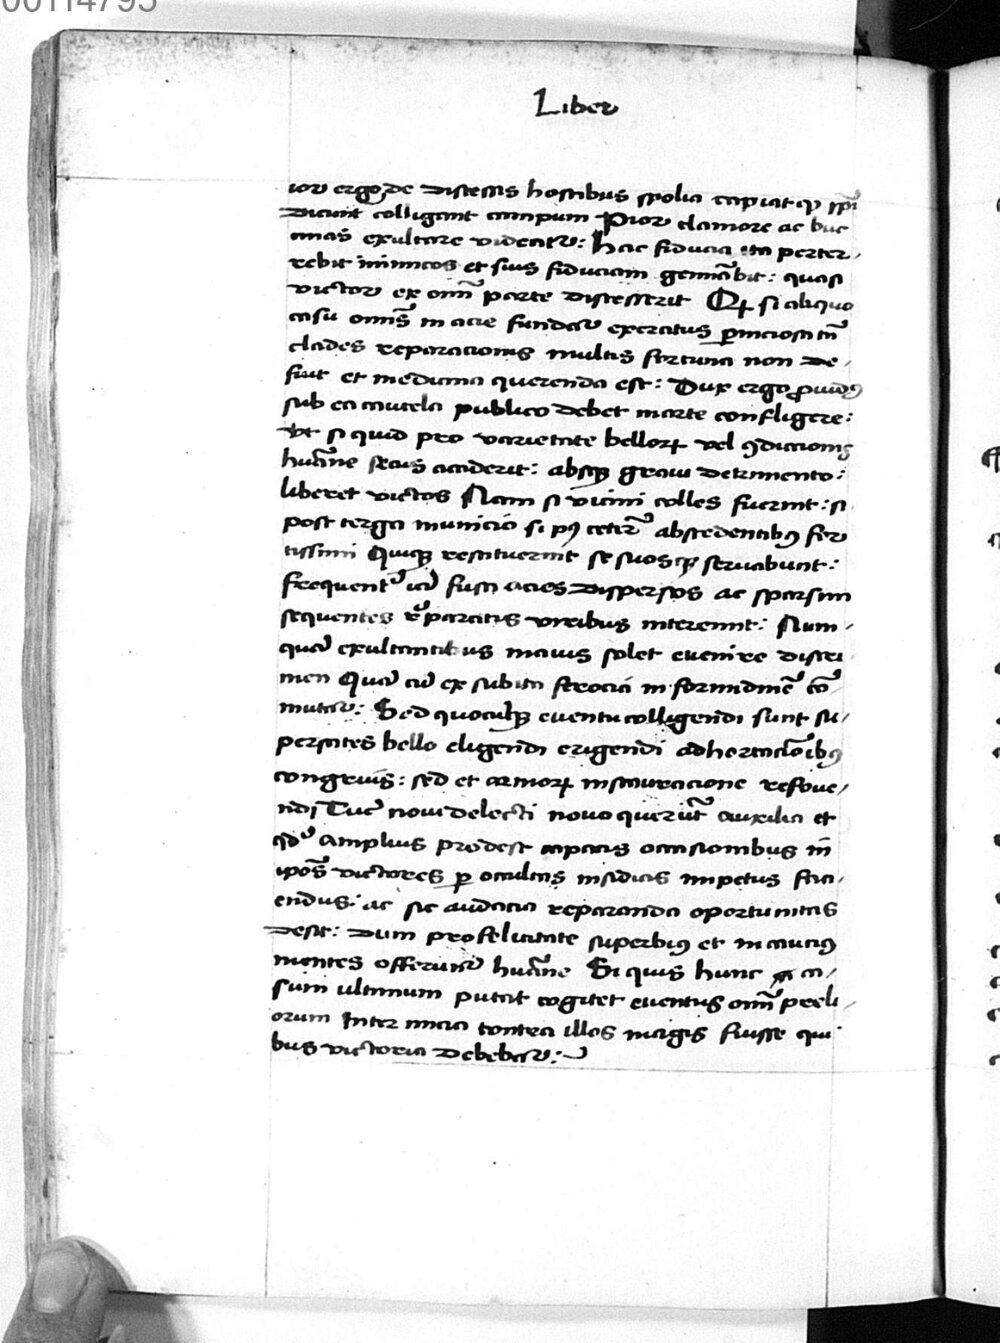 00114795
Liber
ior ergo de discessis hostibus spolia capiat qͥ ipi
dicunt colligant campum Prior clamore ac buc
cinas exultare videatr: hac fiducia ita perter
rebit inimicos et suis fiduciam geminabit: quasi
victor ex omi parte discesserit Qꝙ si aliquo
casu omis in acie fundatr exercitus pniciosa tn
clades reparacionis multis fortuna non de
fuit et medicina querenda est: Dux ergo ꝓuidꝰ
sub ea cautela publico debet marte confligere:
vt si quid pro varietate belloꝝ vel ꝯdicionis
humane secus acciderit: absqꝫ graui detrimento:
liberet victos Nam si vicini colles fuerint: si
post terga municio si pꝰ ceteris abscedentibꝰ for
tissimi Quiqꝫ restituerint se suosqꝫ seruabunt:
frequenter iam fusa acies dispersos ac sparsim
sequentes reparatis viribus interemit: Num
quam exultantibus maius solet euenire discri
men Quam cum ex subita ferocia in formidine co
mutatur: Sed quocumqꝫ euentu colligendi sunt su
perstites bello eligendi erigendi adhortacoibꝰ
congruis: sed et armoꝝ instauracione refoue
ndi Tuc noui delecti noua queruntr auxilia et
qd amplius prodest captatis occasionibus in
ipos victores ꝑ occultas insidias impetus faci
endus: ac sic audacia reparanda oportunitas
desit: dum pro felicitate superbiꝰ et incauciꝰ
mentes offerunt humane Si quis hunc ca
sum ultimum putat cogitet euentus omi preli
orum Inter inicia contra illos magis fuisse qui
bus victoria debebatur: